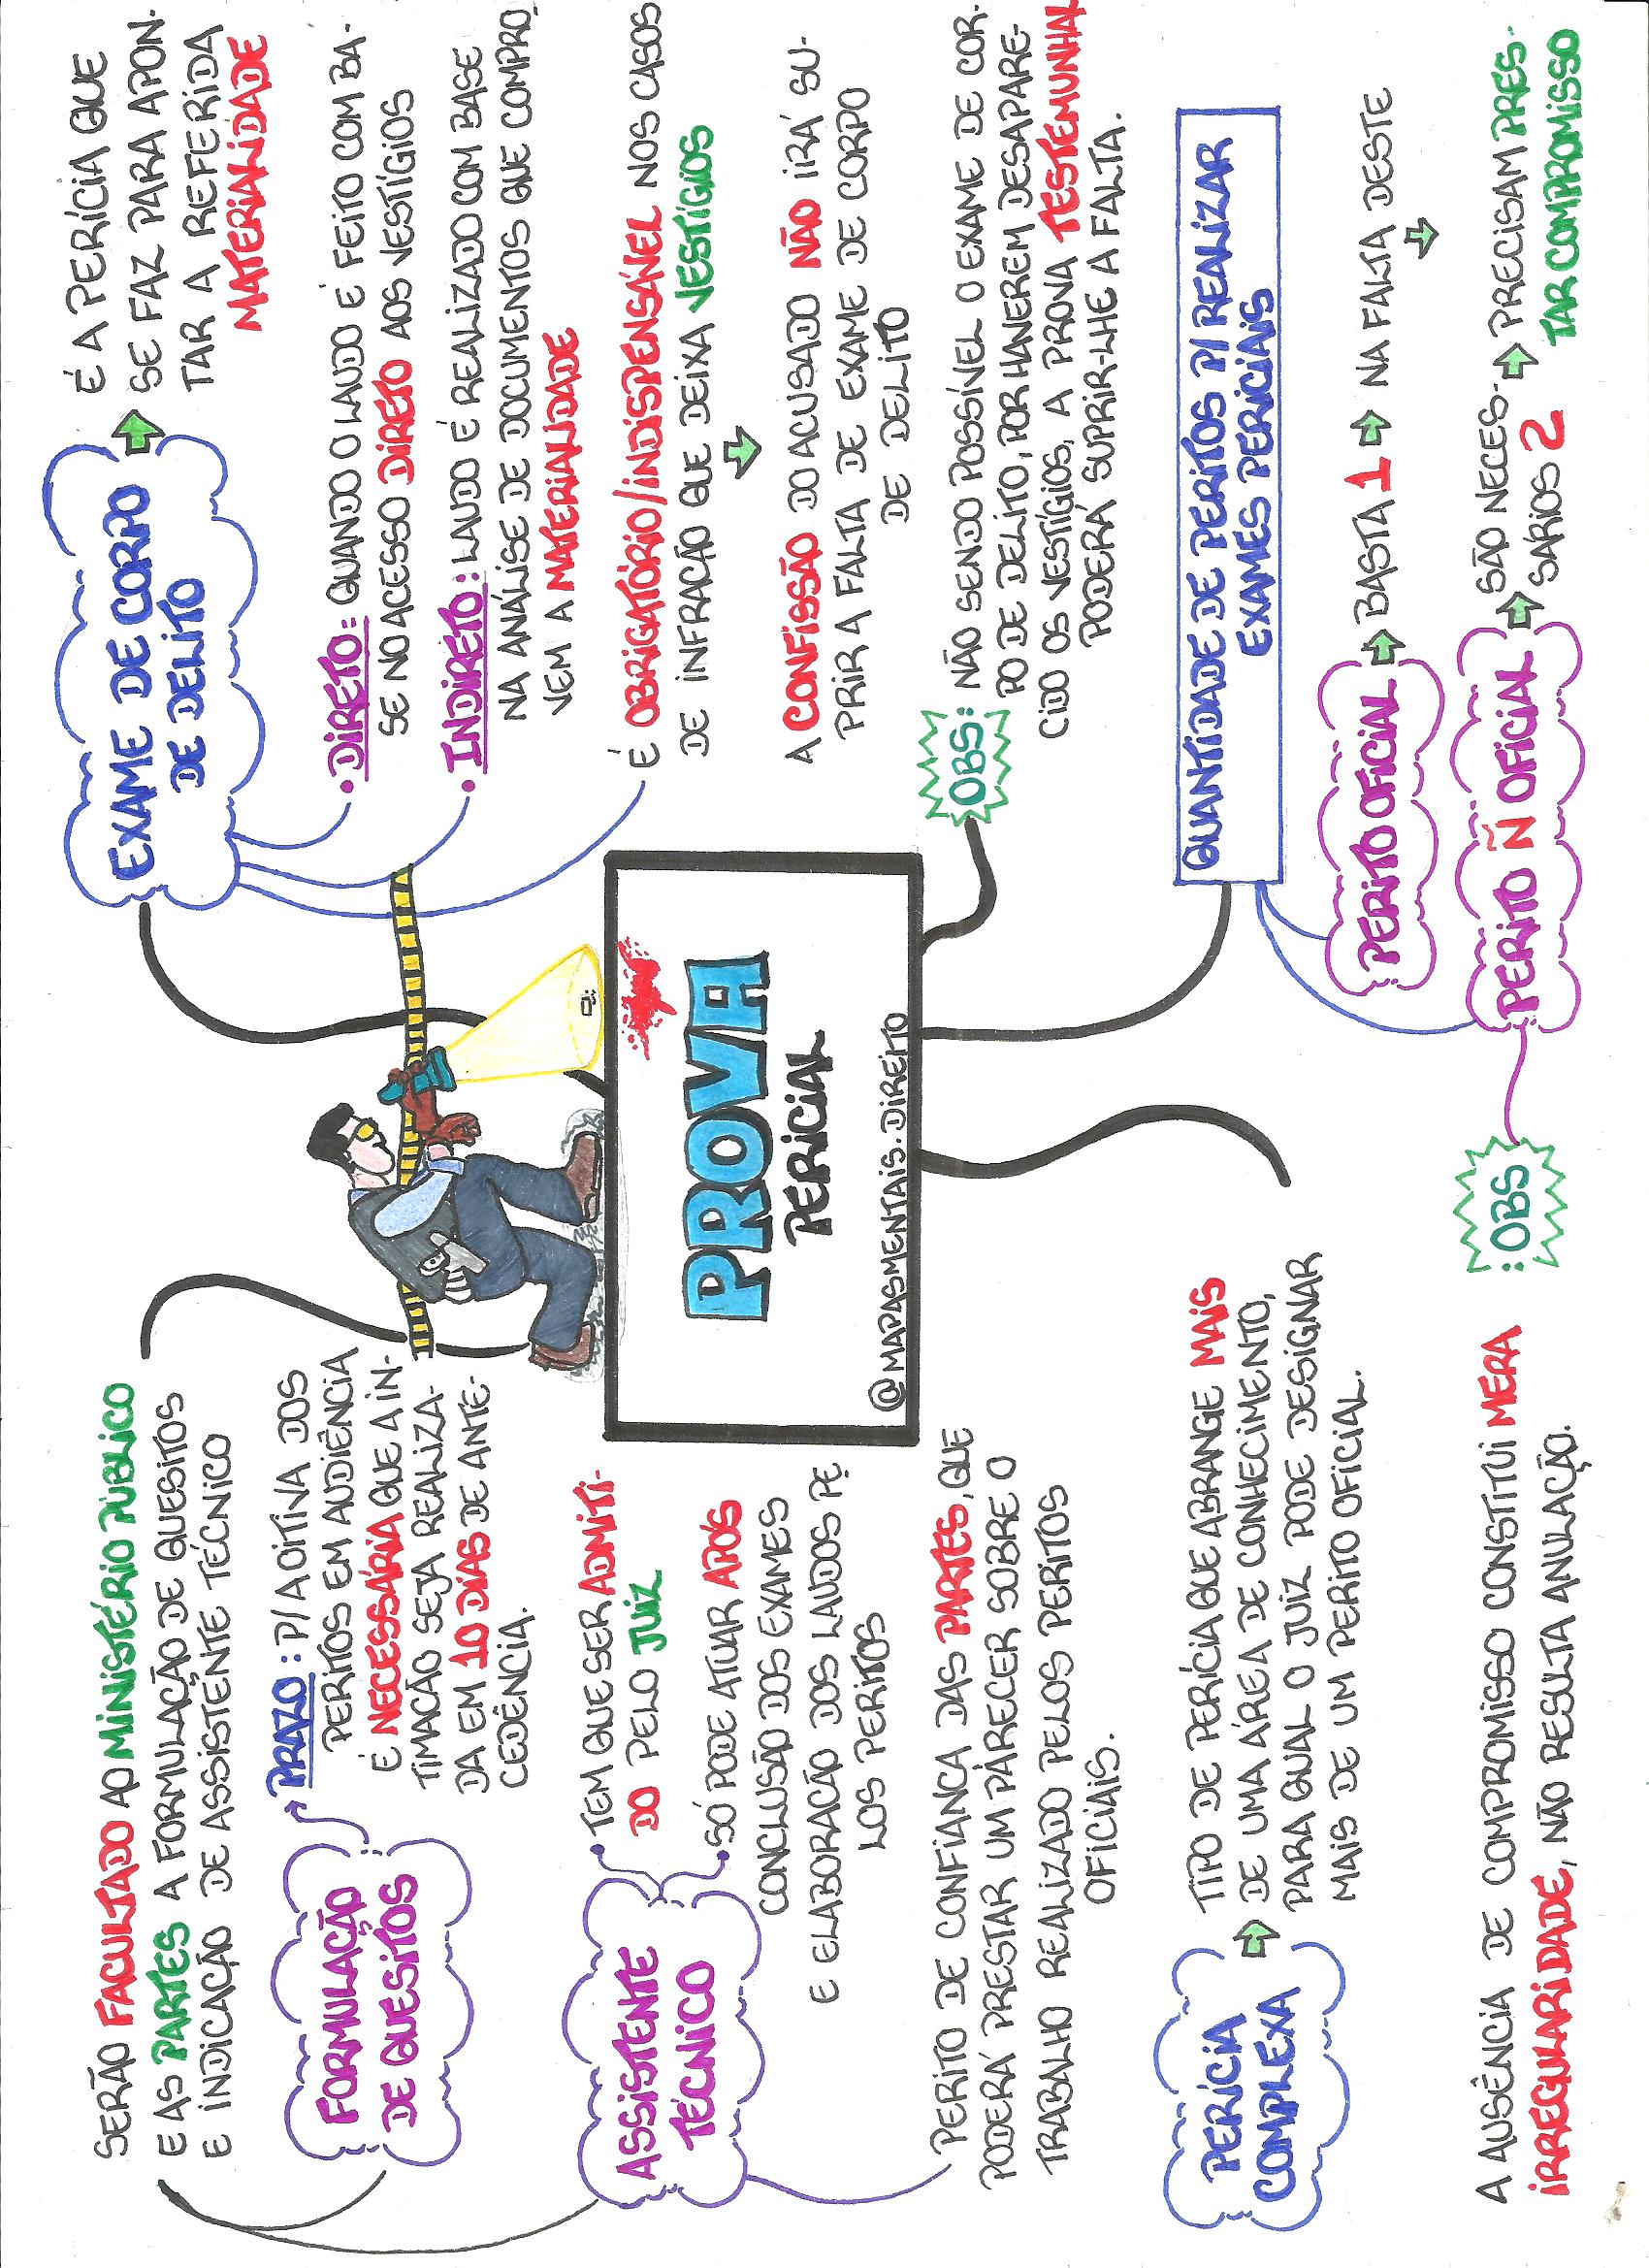 PROVA
PERICIAL
@MAPASMENTAIS.DIREITO
SERÃO FACULTADO AO MINISTÉRIO PÚBLICO
E AS PARTES A FORMULAÇÃO DE QUESITOS
E INDICAÇÃO DE ASSISTENTE TÉCNICO
FORMULAÇÃO
DE QUESITOS
PRAZO: P/ A OITIVA DOS
PERITOS EM AUDIÊNCIA
É NECESSÁRIA QUE A IN-
TIMAÇÃO SEJA REALIZA-
DA EM 10 DIAS DE ANTE-
CEDÊNCIA.
ASSISTENTE
TÉCNICO
• TEM QUE SER ADMITI-
DO PELO JUIZ
• SÓ PODE ATUAR APÓS
CONCLUSÃO DOS EXAMES
E ELABORAÇÃO DOS LAUDOS PE
LOS PERITOS
PERITO DE CONFIANCA DAS PARTES, QUE
PODERÁ PRESTAR UM PARECER SOBRE O
TRABALHO REALIZADO PELOS PERITOS
OFICIAIS.
PERÍCIA
COMPLEXA
TIPO DE PERÍCIA QUE ABRANGE MAIS
DE UMA ÁREA DE CONHECIMENTO,
PARA QUAL O JUIZ PODE DESIGNAR
MAIS DE UM PERITO OFICIAL.
EXAME DE CORPO
DE DELITO
É A PERÍCIA QUE
SE FAZ PARA APON-
TAR A REFERIDA
MATERIALIDADE
• DIRETO: QUANDO O LAUDO É FEITO COM BA-
SE NO ACESSO DIRETO AOS VESTÍGIOS
• INDIRETO: LAUDO É REALIZADO COM BASE
NA ANÁLISE DE DOCUMENTOS QUE COMPRO
VEM A MATERIALIDADE
É OBRIGATÓRIO/INDISPENSÁVEL NOS CASOS
DE INFRAÇÃO QUE DEIXA VESTÍGIOS
A CONFISSÃO DO ACUSADO NÃO IRÁ SU-
PRIR A FALTA DE EXAME DE CORPO
DE DELITO
OBS: NÃO SENDO POSSÍVEL O EXAME DE COR-
PO DE DELITO, POR HAVEREM DESAPARE-
CIDO OS VESTÍGIOS, A PROVA TESTEMUNHAL
PODERÁ SUPRIR-LHE A FALTA.
QUANTIDADE DE PERITOS P/ REALIZAR
EXAMES PERICIAIS
PERITO OFICIAL
BASTA 1
NA FALTA DESTE
PERITO Ñ OFICIAL
SÃO NECES-
SÁRIOS 2
PRECISAM PRES-
TAR COMPROMISSO
OBS:
A AUSÊNCIA DE COMPROMISSO CONSTITUI MERA
IRREGULARIDADE, NÃO RESULTA ANULAÇÃO.